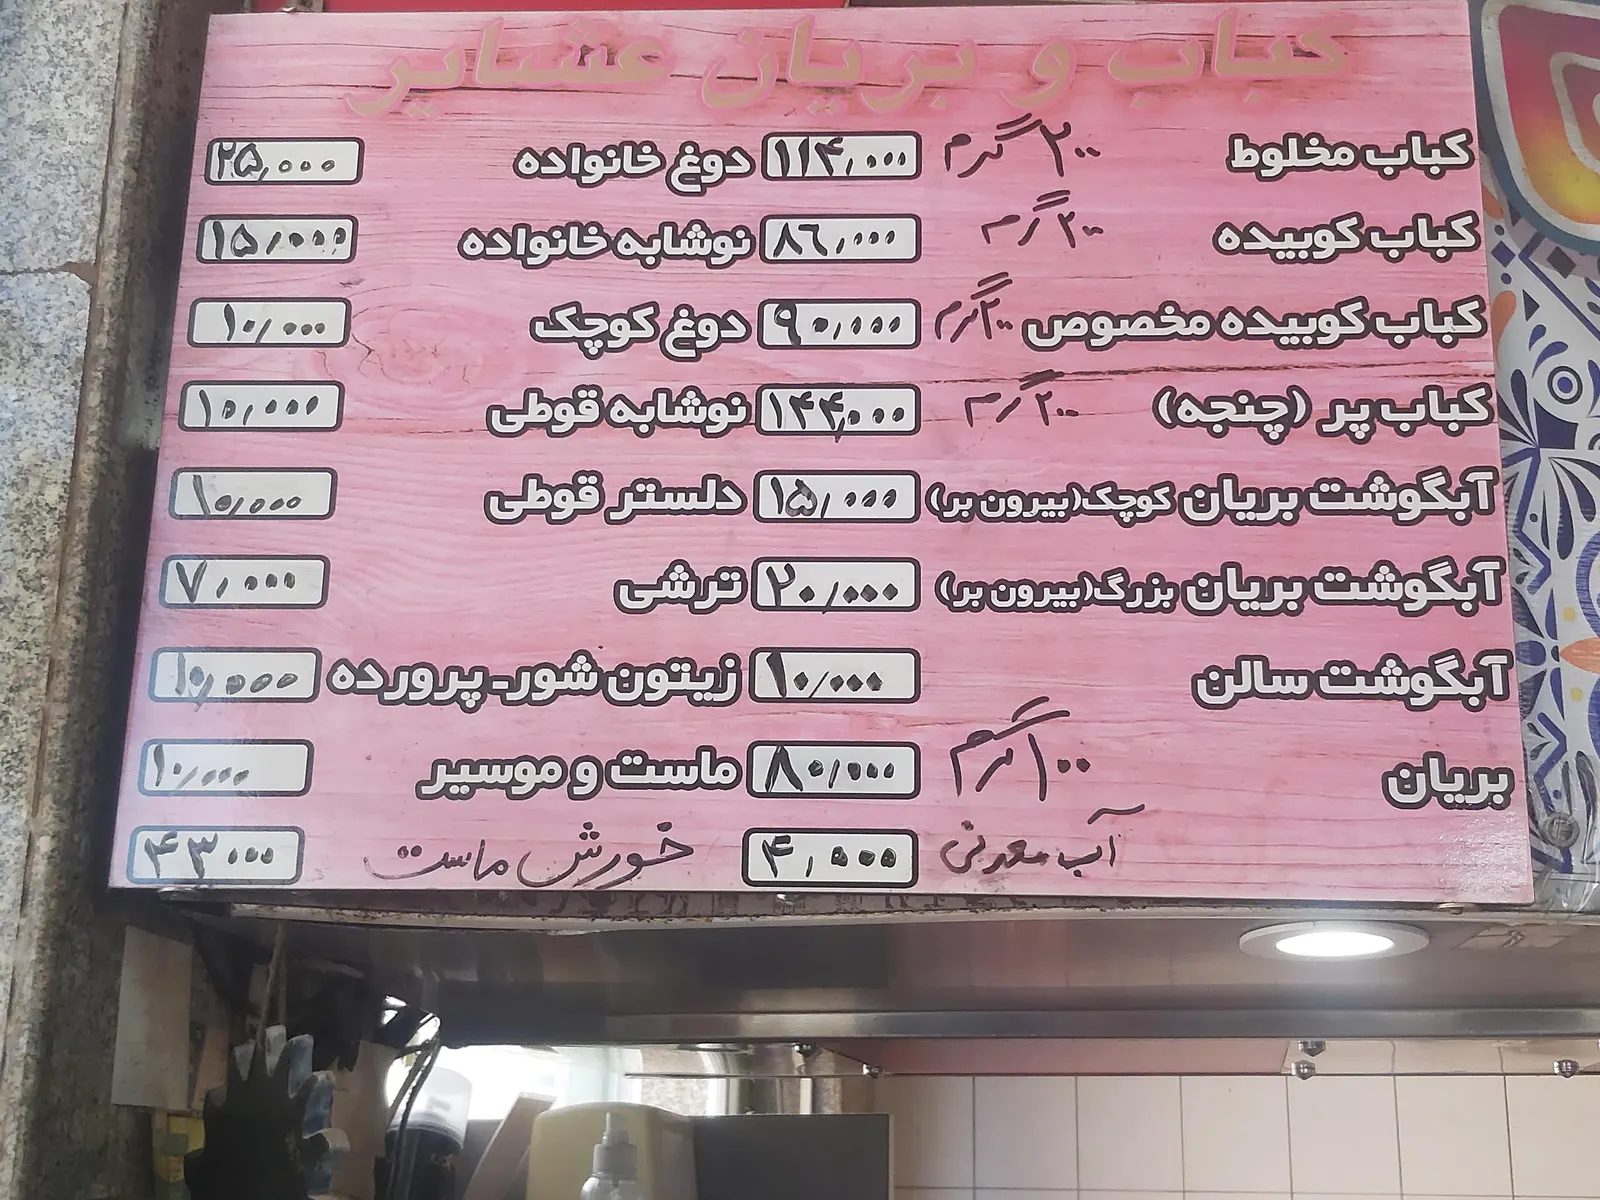 کباب و بریان عشایر
کباب مخلوط ۲۰۰ گرم ۱۱۴,۰۰۰
کباب کوبیده ۲۰۰ گرم ۸۶,۰۰۰
کباب کوبیده مخصوص ۲۰۰ گرم ۹۰,۰۰۰
کباب پر (چنجه) ۲۰۰ گرم ۱۴۴,۰۰۰
آبگوشت بریان کوچک(بیرون بر) ۱۵,۰۰۰
آبگوشت بریان بزرگ(بیرون بر) ۲۰,۰۰۰
آبگوشت سالن ۱۰,۰۰۰
بریان ۱۰۰ گرم ۸۰,۰۰۰
آب معدنی ۴,۰۰۰
دوغ خانواده ۲۵,۰۰۰
نوشابه خانواده ۱۵,۰۰۰
دوغ کوچک ۱۰,۰۰۰
نوشابه قوطی ۱۰,۰۰۰
دلستر قوطی ۱۰,۰۰۰
ترشی ۷,۰۰۰
زیتون شور-پرورده ۱۰,۰۰۰
ماست و موسیر ۱۰,۰۰۰
خورش ماست ۴۳۰۰۰